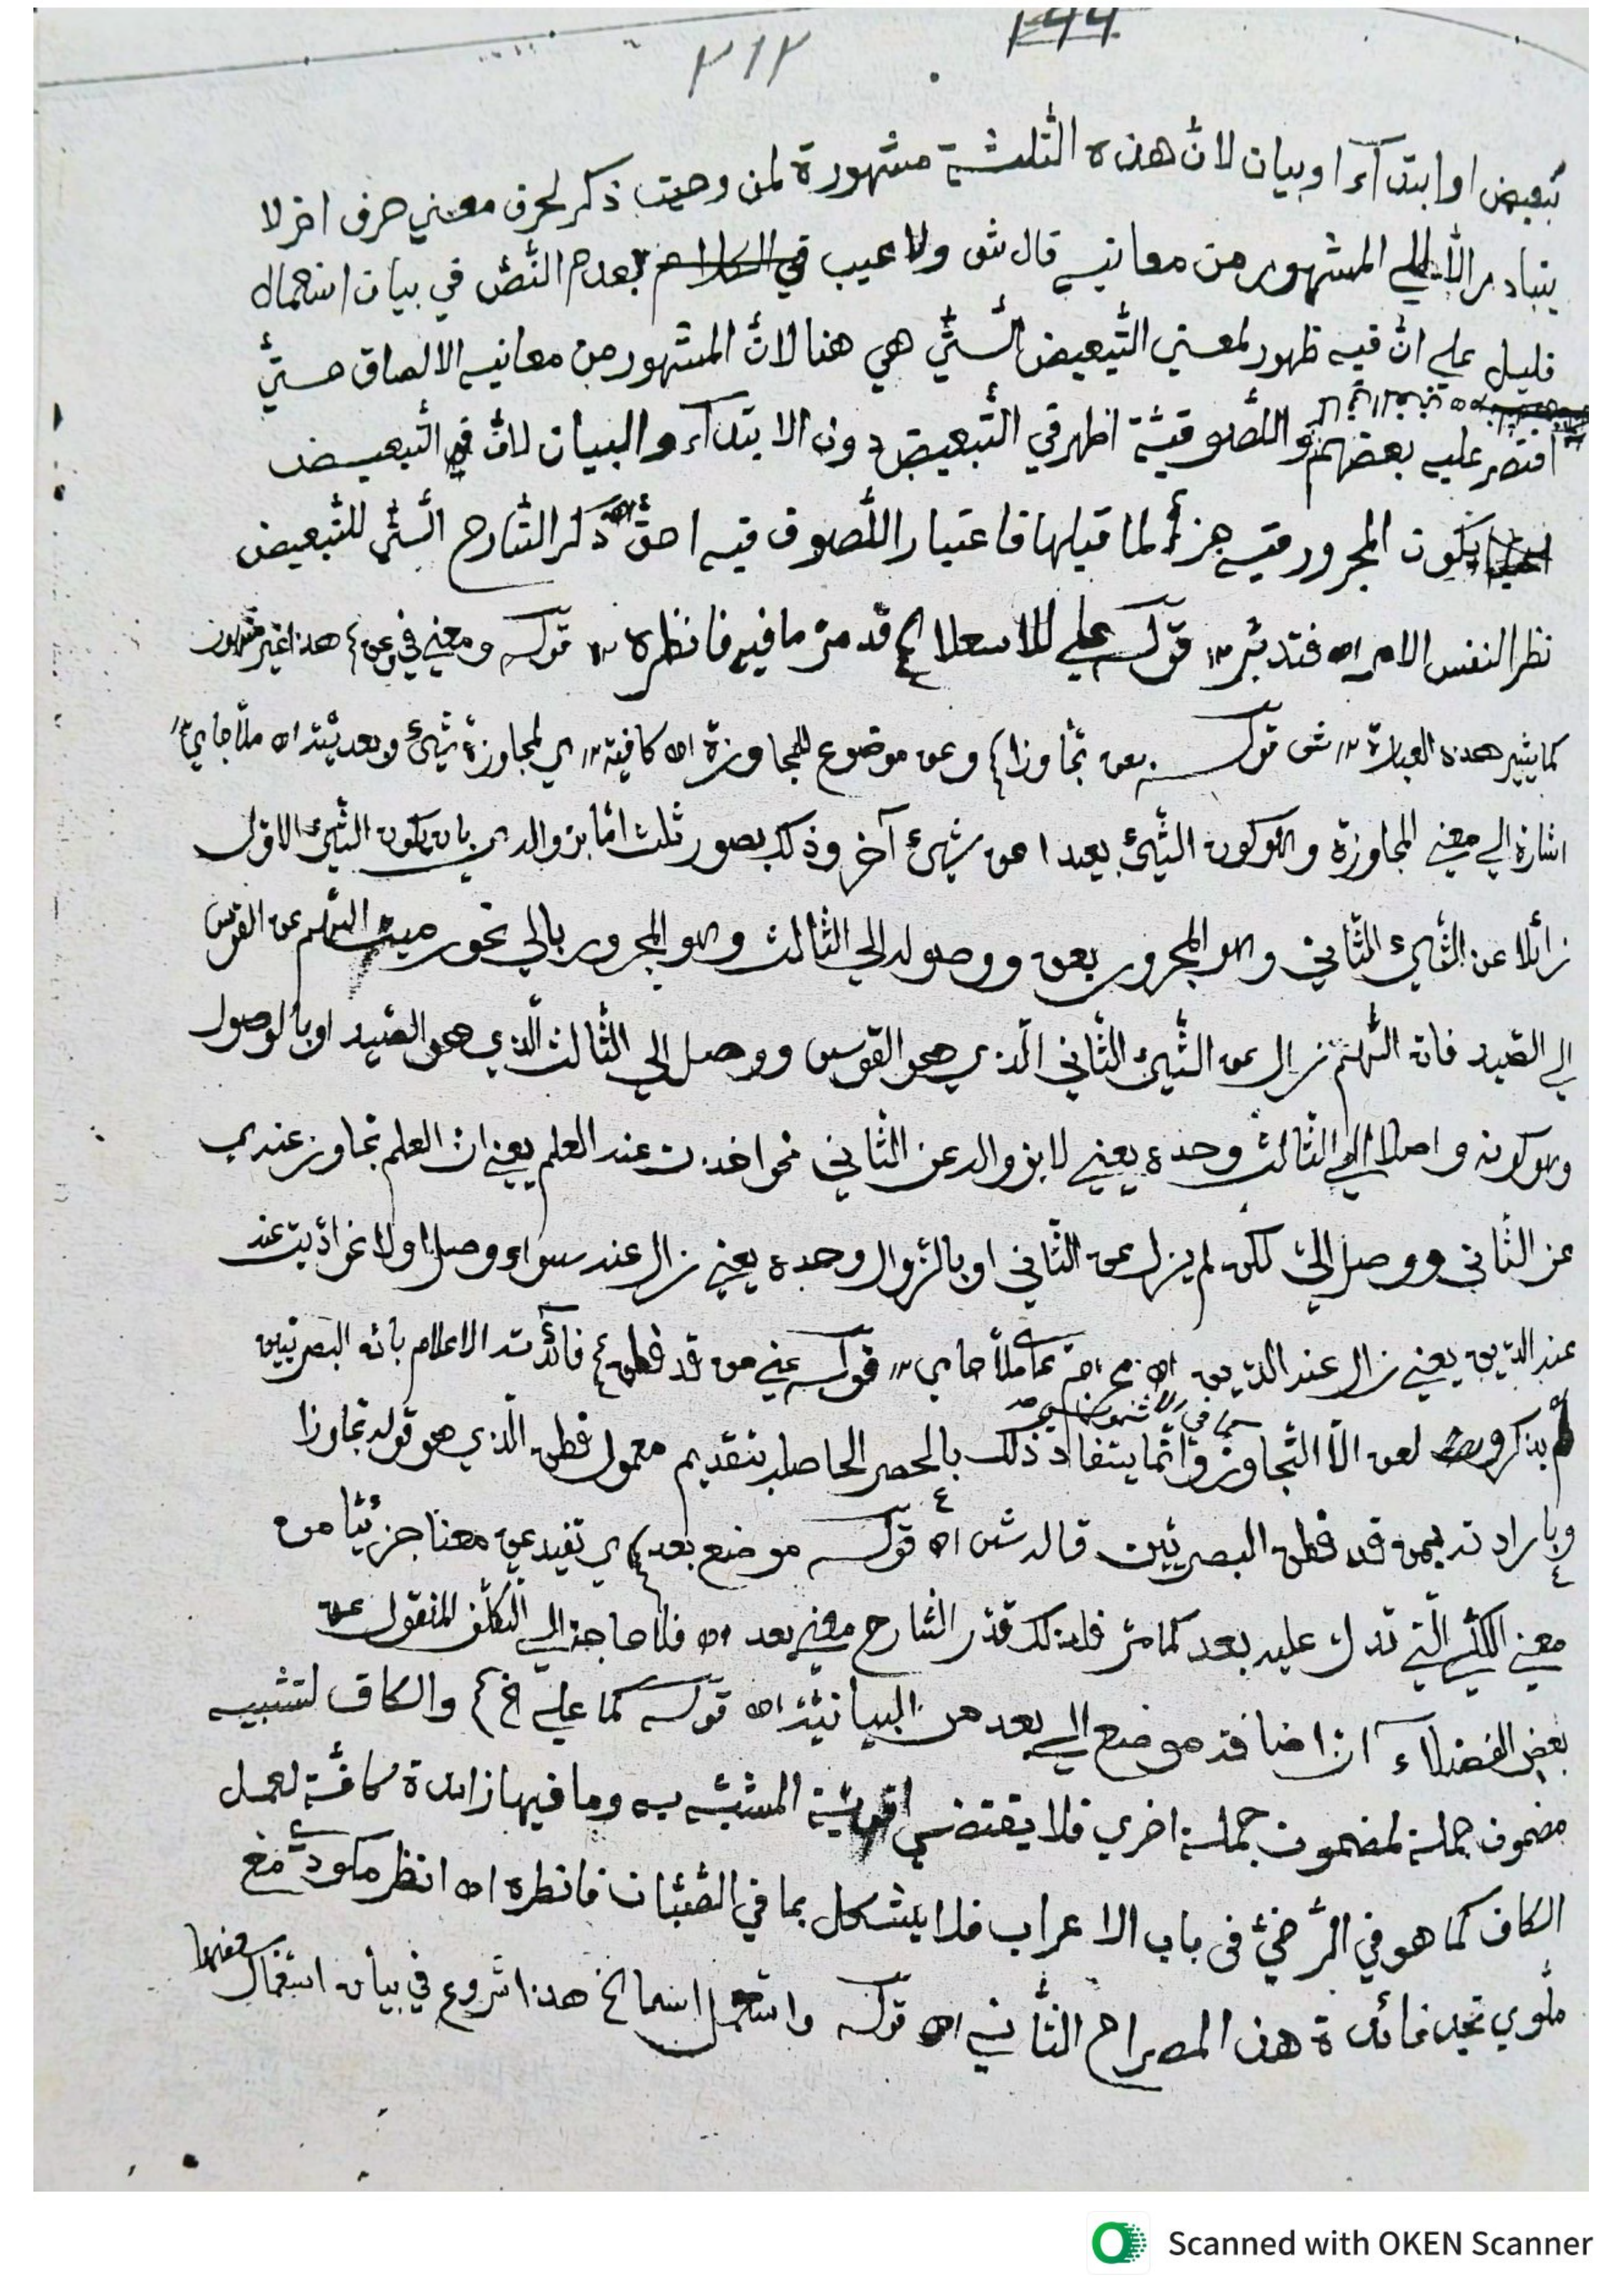 ٢١٢
تبعيض او ابتدآء او بيان لانّ هذه الثلثة مشهورة لمن وحيث ذكر لحرف معني حرف اخر لا
يتبادر الّا الي المشهور من معانيه قال ش ولا عيب بعدم النّصّ في بيان استعمال
قليل علي انّ فيه ظهور لمعني التّبعيض الّتي هي هنا لانّ المشهور من معانيه الالصاق حتّي
اقتصر عليه بعضهم واللّصوقيّة اظهر في التّبعيض دون الابتدآء والبيان لانّ في التّبعيض
يكون المجرور فيه جزأ لما قبلها فاعتبار اللّصوق فيه احقّ ذكر الشّارح الّتي للتّبعيض
نظر النفس الامر اه فتدبّر ١٢ قوله علي للاستعلا قد مرّ ما فيه فانظره ١٢ قوله ومعني في وعن هذا غير مشهور
كما يشير هذه العبارة ١٢ ش قوله بعن تجاوزا وعن موضوع للمجاوزة اه كافية ١٢ اي لمجاوزة شئ وتعديته اه ملّا جامي ١٢
اشارة الي معني المجاوزة وهو كون الشّئ بعيدا عن شئ آخر وذلك بصور ثلث امّا بزواله اي بان يكون الشّئ الاوّل
زائلا عن الشّئ الثّاني وهو المجرور بعن ووصوله الي الثّالث وهو المجرور بالي نحو رميت السّهم عن القوس
الي الصّيد فانّ السّهم زال عن الشّئ الثّاني الّذي هو القوس ووصل الي الثّالث الّذي هو الصّيد او بالوصول
وهو كونه واصلا الي الثالث وحده يعني لا بزواله عن الثّاني نحو اخذت عنه العلم يعني ان العلم تجاوز عنه اي
عن الثّاني ووصل اليّ لكن لم يزل عن الثّاني او بالزّوال وحده يعني زال عنه سواء وصل اولا نحو ادّيت عنه
الدّين يعني زال عنه الدّين اه ملّا جامي ١٢ قوله عني من قد فطن فائدته الاعلام بانّ البصريّين
لم يذكروا لعن الّا التّجاوز كما في الاشموني وانّما يستفاد ذلك بالحصر الحاصل بتقديم معمول فطن الّذي هو قوله تجاوزا
وبارادته بمن قد فطن البصريّين قاله ش اه قوله موضع بعد اي تفيد عن معنا جزئيّا من
معني الكلّي الّتي تدل عليه بعد كما مرّ فلذلك قدّر الشّارح معني بعد اه فلا حاجة الي التكلّف المنقول عن
بعض الفضلآء ان اضافة موضع الي بعد من البيانيّة اه قوله كما علي خ والكاف لتشبيه
مضمون جملة لمضمون جملة اخري فلا يقتضي اقوائيّة المشبّه به وما فيها زائدة كافّة لعمل
الكاف كما هو في الرّضيّ في باب الاعراب فلا يشكل بما في الصّبّان فانظره اه انظر مكودي مع
ملّوي تجد فائدة هذا المصراع الثّاني اه قوله واستعمل اسما الخ هذا شروع في بيان استعمال بعضها
Scanned with OKEN Scanner